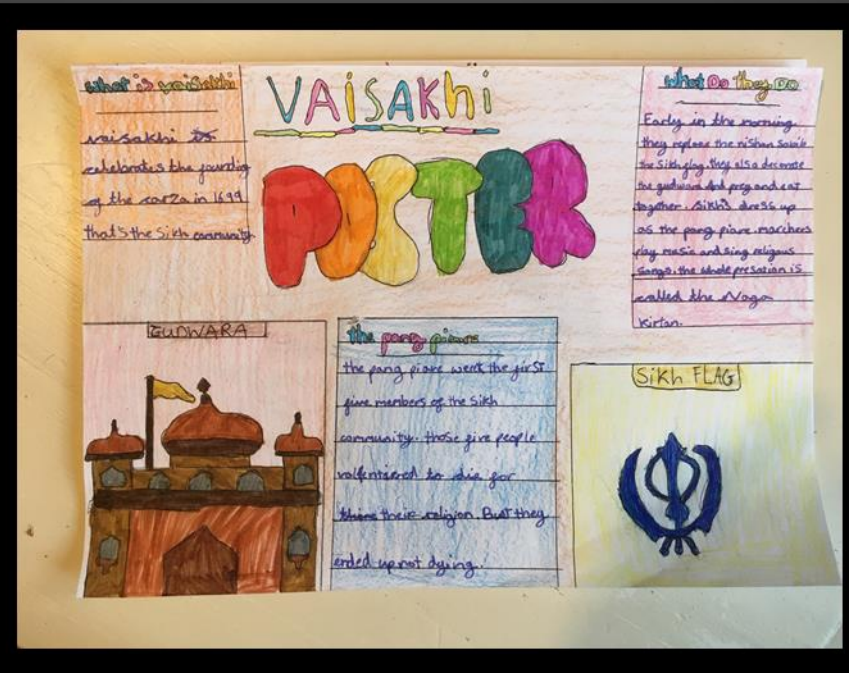 VAISAKHI
POSTER
what is vaisakhi
vaisakhi is
celebrates the founding
of the carza in 1699
that's the Sikh community.
what Do they DO
Early in the morning
they replace the nishan Sahib
the Sikh flag. they also decorate
the gudwara And prey and eat
together. Sikhs dress up
as the pang piare. marchers
play music and sing religous
songs. the whole presation is
called the Naga
Kirtan.
GUDWARA
the pang piare
the pang piare werk the first
five members of the Sikh
community. those five people
volfentiered to die for
their religion. But they
ended up not dying.
Sikh FLAG